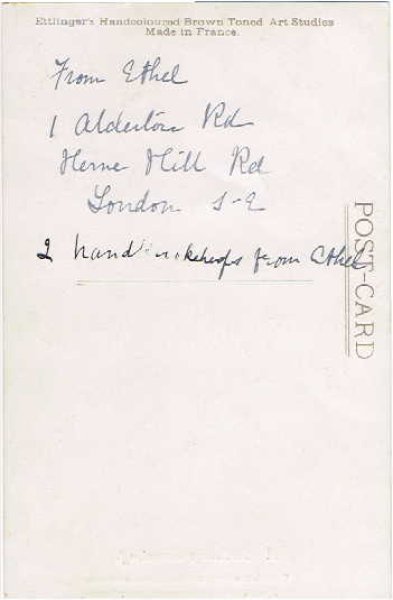 Ettlinger's Handcoloured Brown Toned Art Studies
Made in France.
From Ethel
1 Alderton Rd
Herne Hill Rd
London S-E
2 handkercheifs from Ethel
POST-CARD